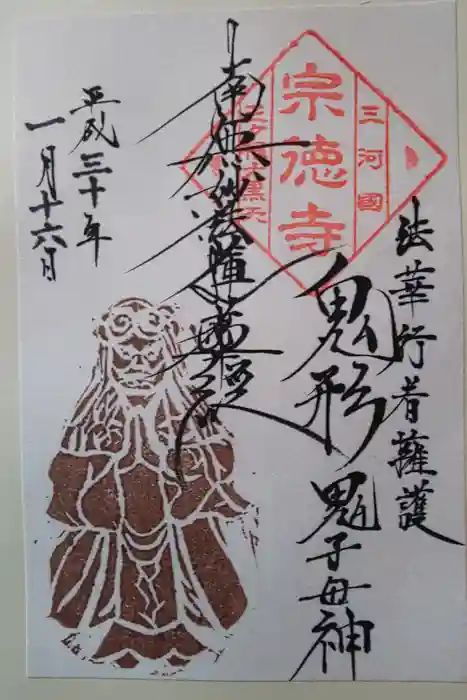 三河國
宗徳寺
法華行者擁護
鬼形鬼子母神
南無妙法蓮華経
平成三十年
一月十六日